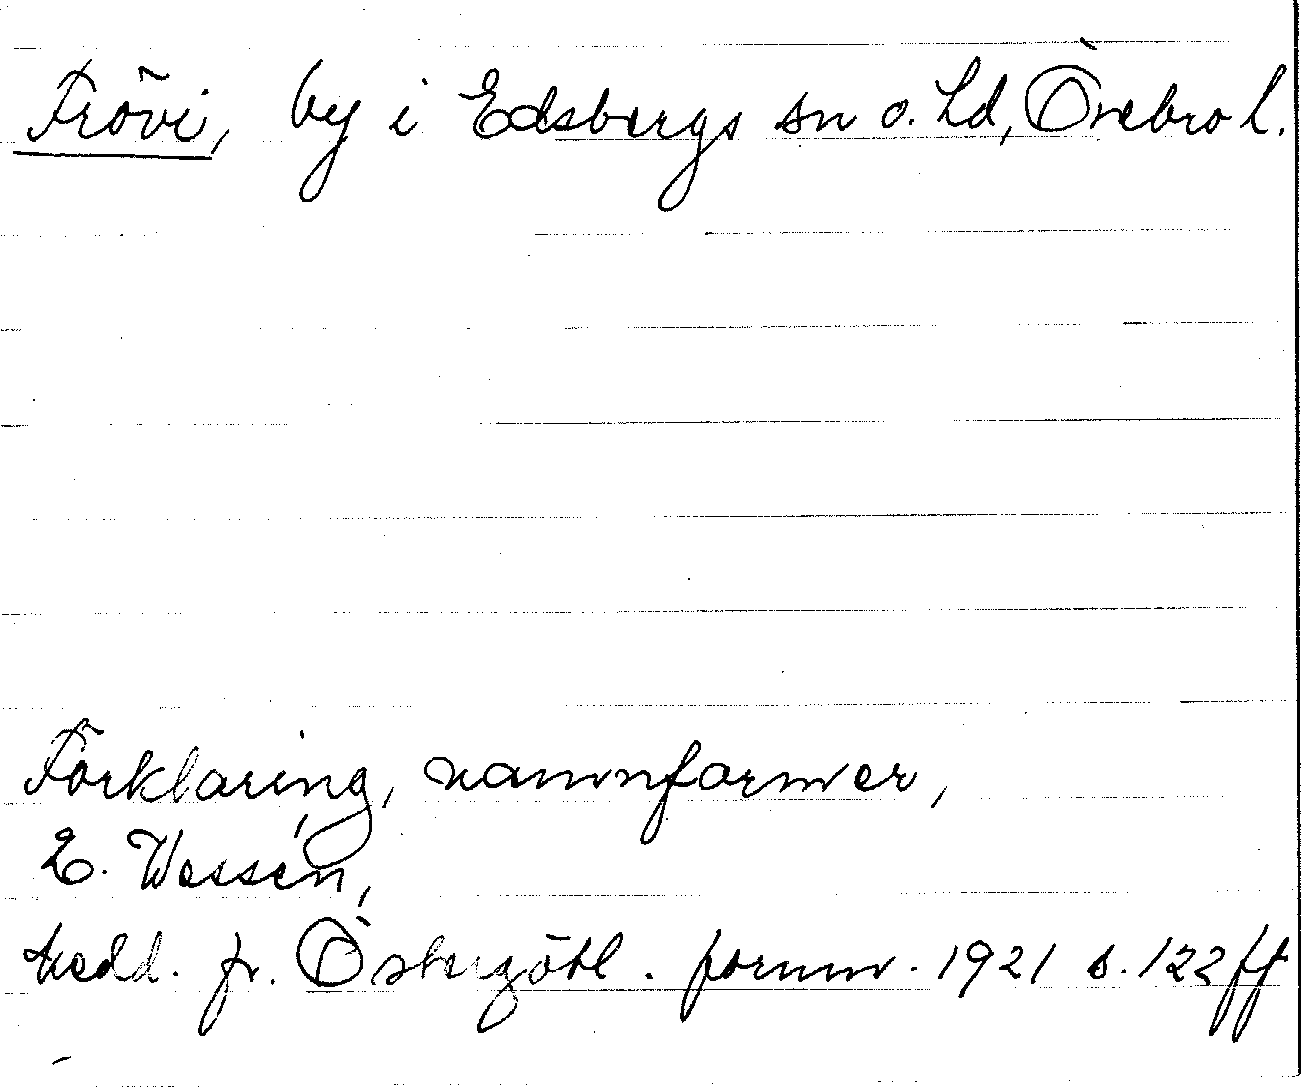 Frövi, by i Edsbergs sn o. hd, Örebro l.
Förklaring, namnformer,
E. Wessén,
Medd. fr. Östergötl. fornm. 1921 s. 122 ff